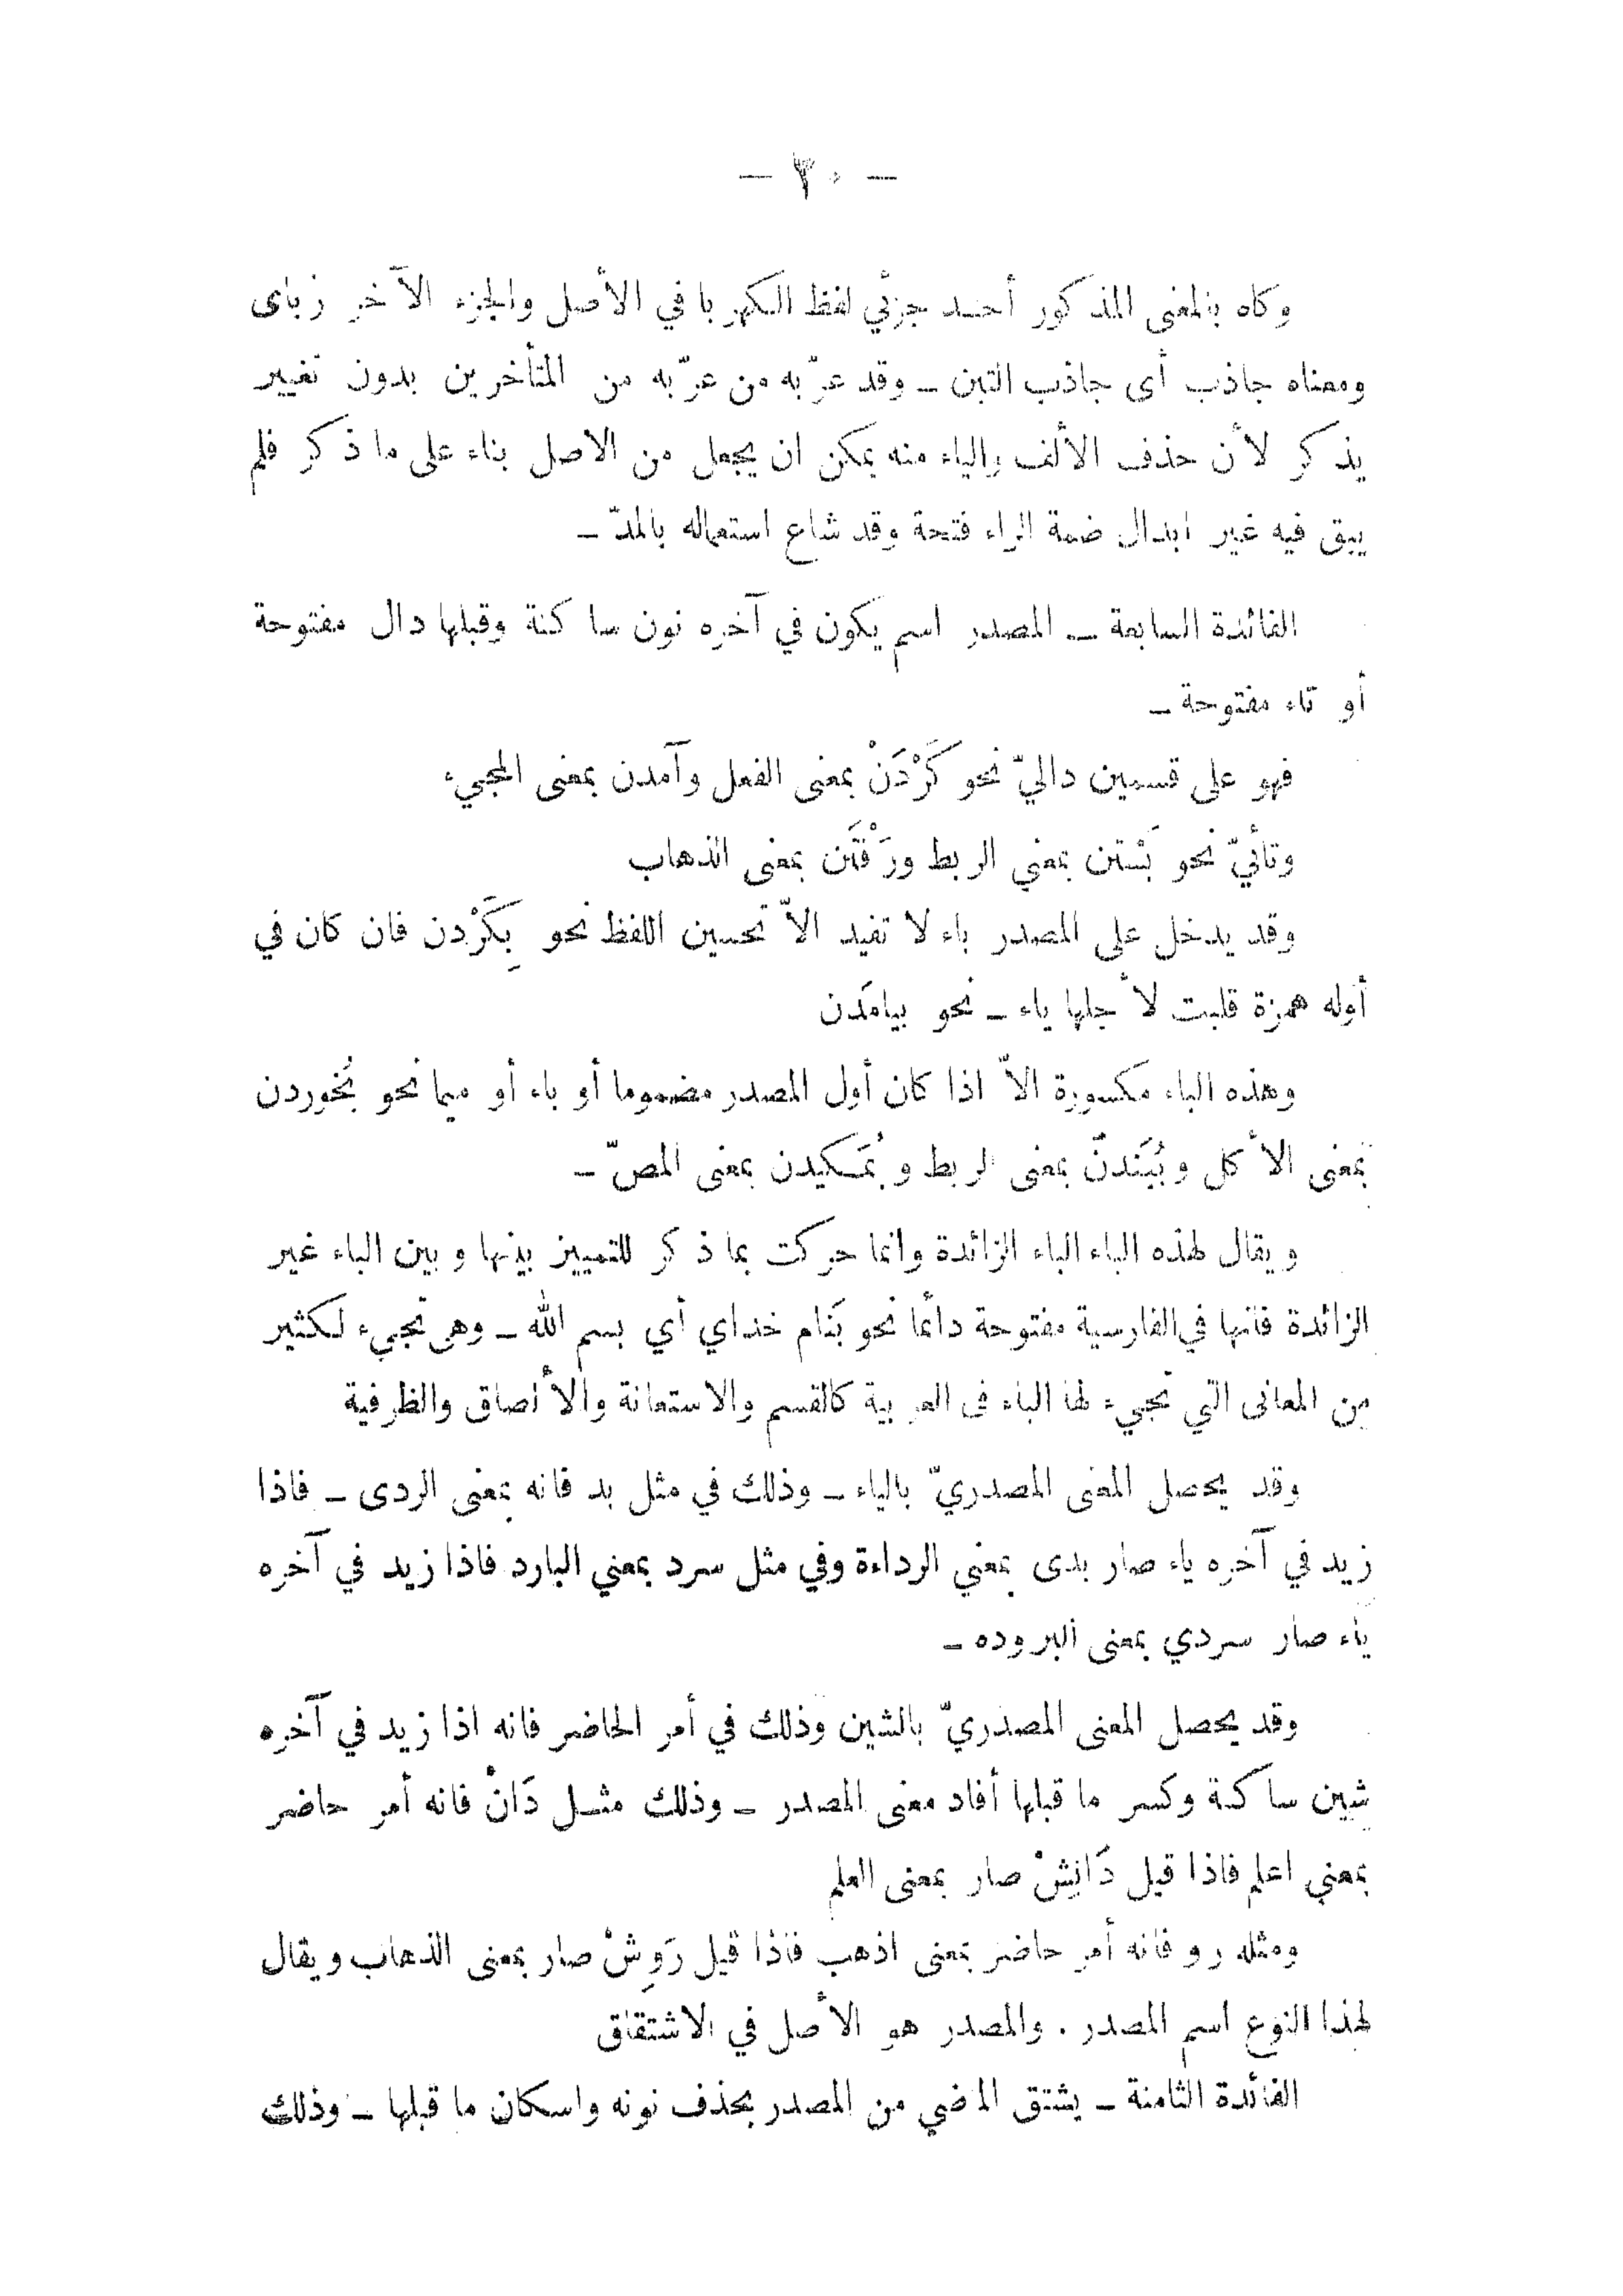 — ٣٠ —
وكاه بالمعنى المذكور أحد جزئي لفظ الكهربا في الأصل والجزء الآخر زباى
ومعناه جاذب أى جاذب التبن ــ وقد عرّبه من عرّبه من المتأخرين بدون تغيير
يذكر لأن حذف الألف والياء منه يمكن ان يجعل من الاصل بناء على ما ذكر فلم
يبق فيه غير ابدال ضمة الراء فتحة وقد شاع استعماله بالمدّ ــ
الفائدة السابعة ــ المصدر اسم يكون في آخره نون ساكنة وقبلها دال مفتوحة
أو تاء مفتوحة ــ
فهو على قسمين داليّ نحو كَرْدَنْ بمعنى الفعل وآمدن بمعنى المجيء
وتائيّ نحو بَستن بمعني الربط ورَفْتَن بمعنى الذهاب
وقد يدخل على المصدر باء لا تفيد الاّ تحسين اللفظ نحو بِكَرْدن فان كان في
أوله همزة قلبت لأجلها ياء ــ نحو بيامَدن
وهذه الباء مكسورة الاّ اذا كان أول المصدر مضموما أو باء أو ميما نحو بُخوردن
بمعنى الأكل وبُبَندنْ بمعنى الربط وبُمَكيدن بمعنى المصّ ــ
ويقال لهذه الباء الباء الزائدة وانما حركت بما ذكر للتمييز بينها وبين الباء غير
الزائدة فانها في الفارسية مفتوحة دائما نحو بَنام خداي أي بسم الله ــ وهى تجيء لكثير
من المعانى التي تجيء لها الباء فى العربية كالقسم والاستعانة والألصاق والظرفية
وقد يحصل المعنى المصدريّ بالياء ــ وذلك في مثل بد فانه بمعنى الردى ــ فاذا
زيد في آخره ياء صار بدى بمعني الرداءة وفي مثل سرد بمعني البارد فاذا زيد في آخره
ياء صار سردي بمعنى البروده ــ
وقد يحصل المعنى المصدريّ بالشين وذلك في أمر الحاضر فانه اذا زيد في آخره
شين ساكنة وكسر ما قبلها أفاد معنى المصدر ــ وذلك مثل دَانْ فانه أمر حاضر
بمعني اعلم فاذا قيل دَانِشْ صار بمعنى العلم
ومثله رو فانه أمر حاضر بمعنى اذهب فاذا قيل رَوِشْ صار بمعنى الذهاب ويقال
لهذا النوع اسم المصدر . والمصدر هو الأصل في الاشتقاق
الفائدة الثامنة ــ يشتق الماضي من المصدر بحذف نونه واسكان ما قبلها ــ وذلك